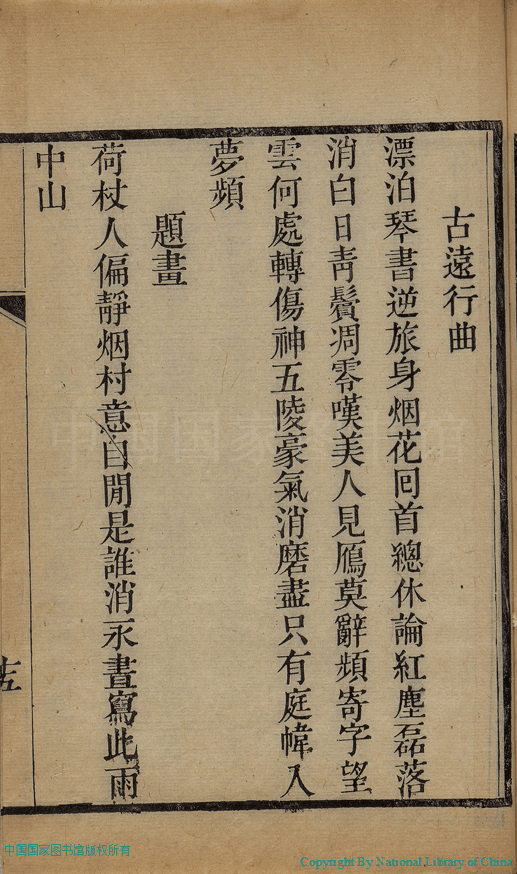 古遠行曲
漂泊琴書逆旅身烟花囘首總休論紅塵磊落
消白日靑鬢凋零嘆美人見鴈莫辭頻寄字望
雲何處轉傷神五陵豪氣消磨盡只有庭幃入
夢頻
題畫
荷杖人偏靜烟村意自閒是誰消永晝寫此雨
中山
中国国家图书馆版权所有
Copyright By National Library of China